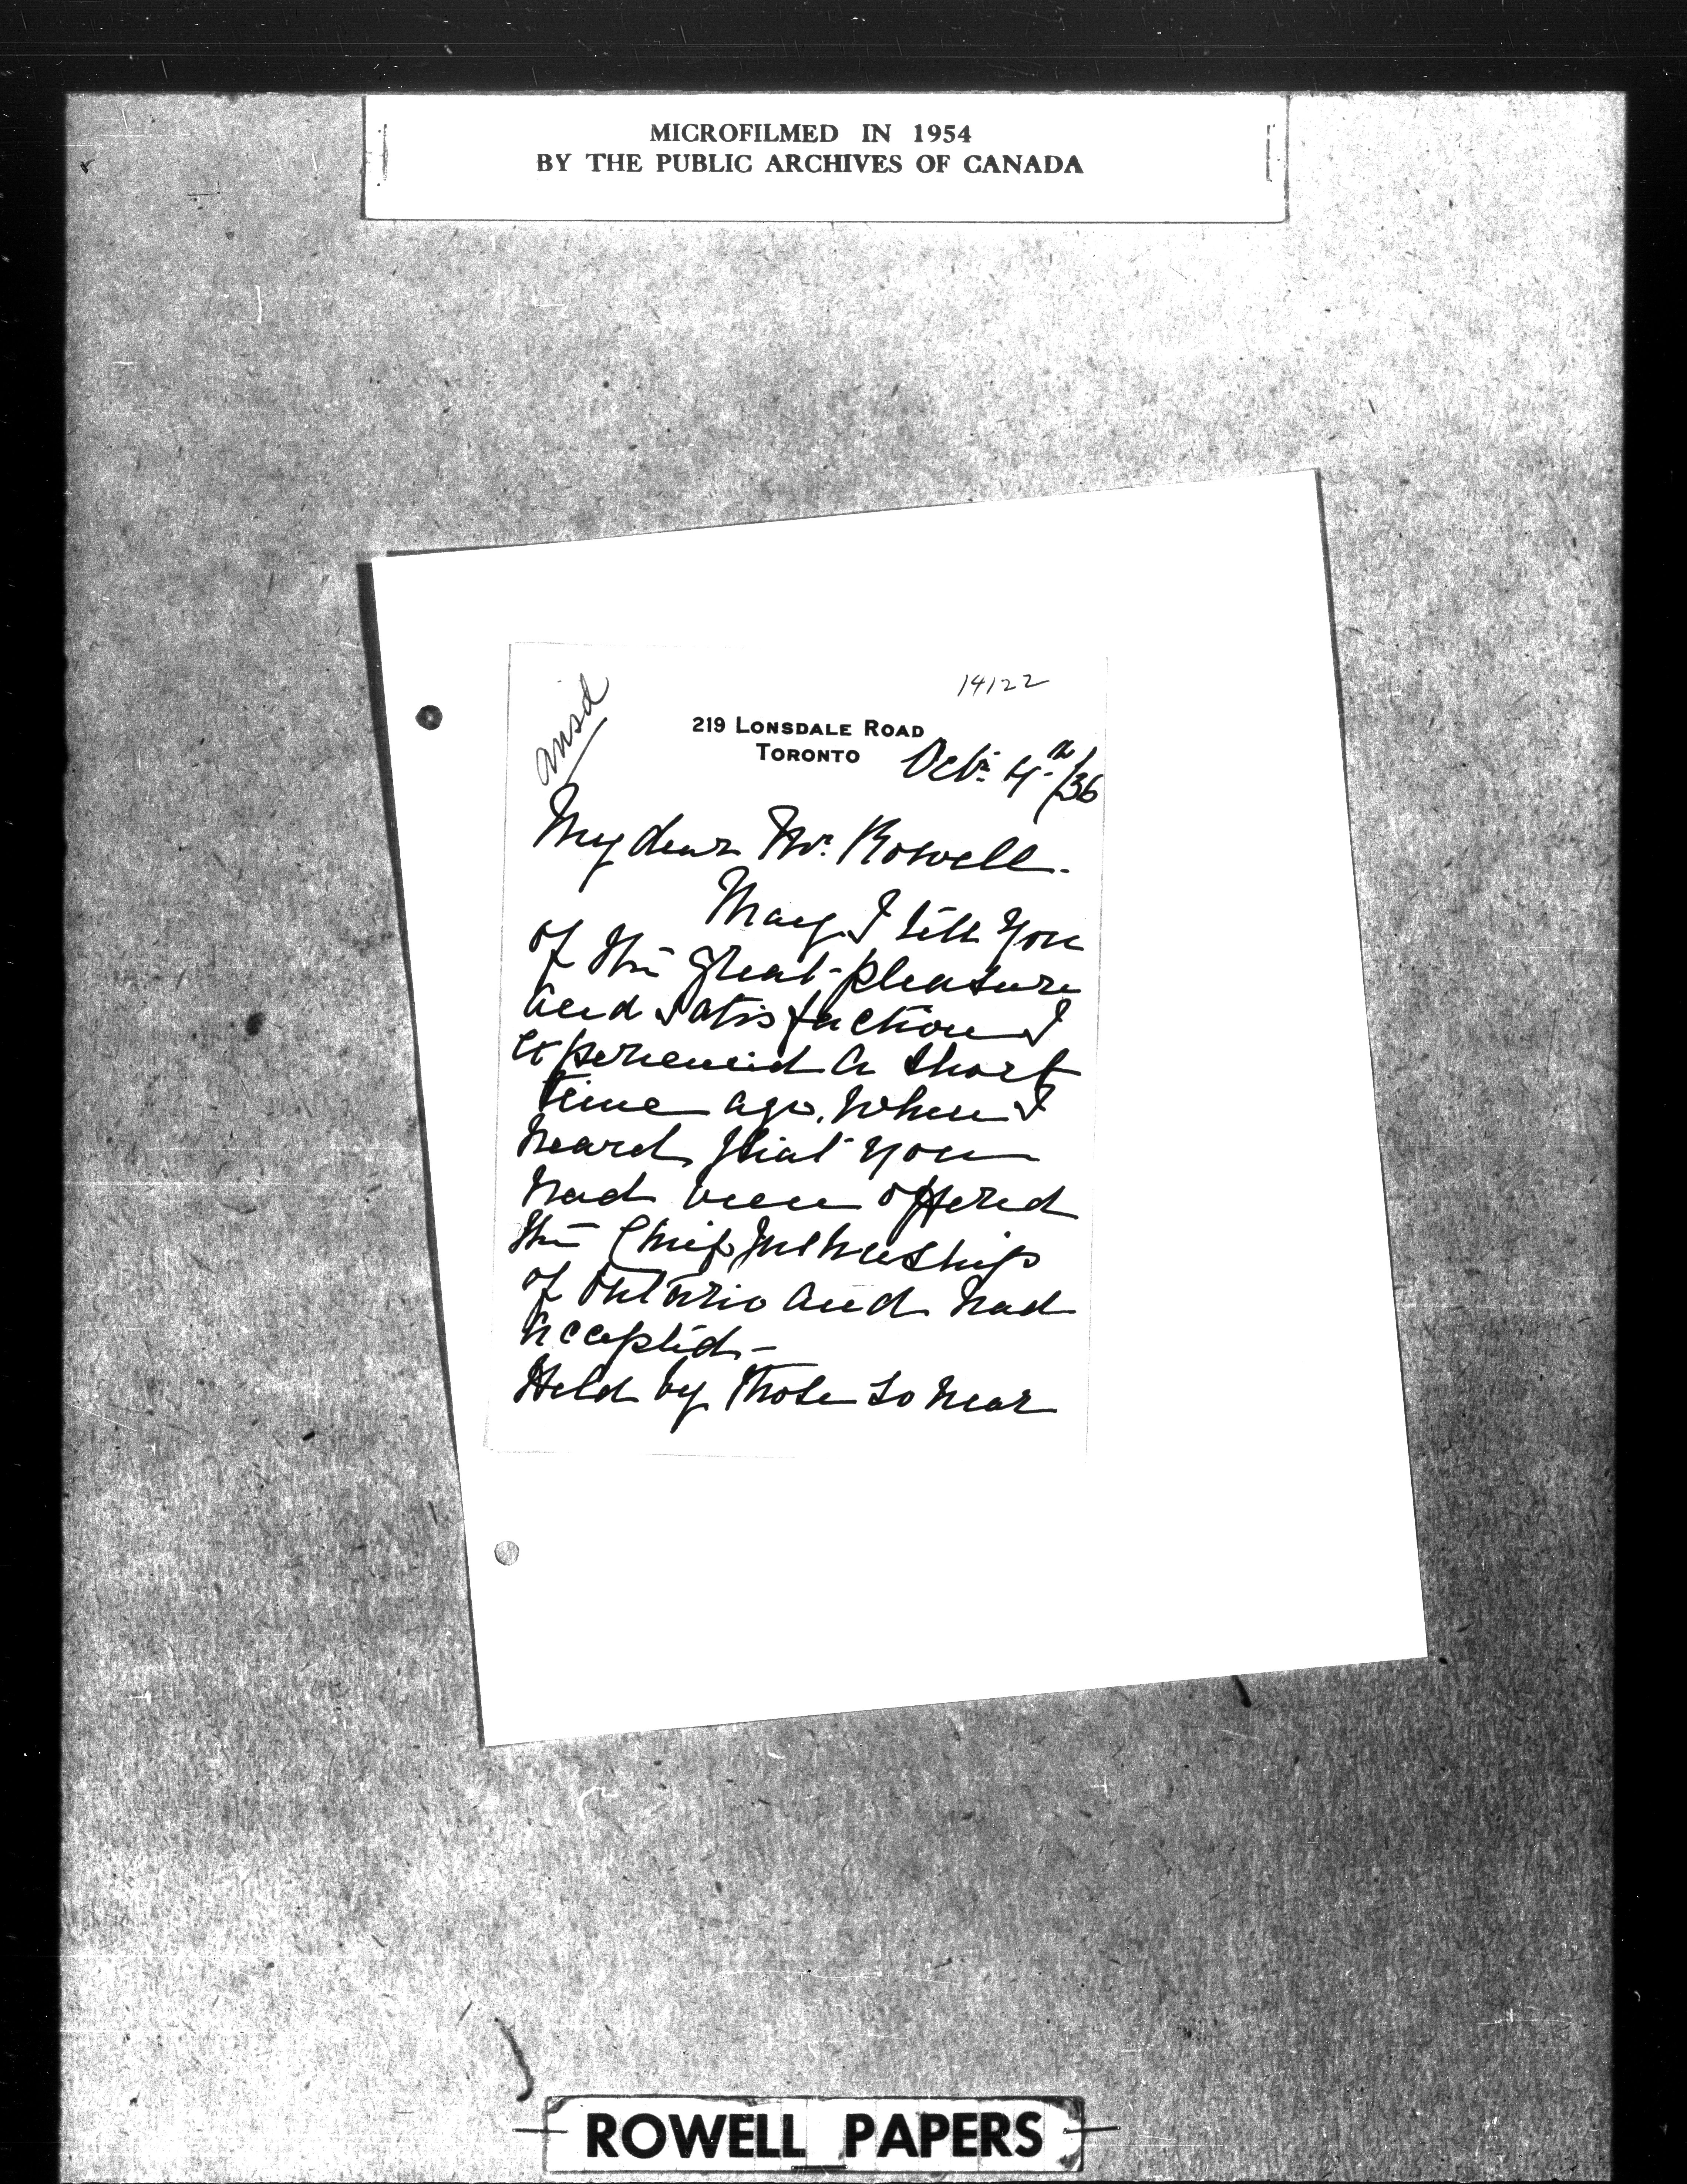 MICROFILMED IN 1954
BY THE PUBLIC ARCHIVES OF CANADA
ansd
14122
219 LONSDALE ROAD
TORONTO
Octr 4th/36
My dear Mr. Rowell.
May I tell you
of the great pleasure
and satisfaction I
experienced a short
time ago, when I
heard that you
had been offered
the Chief Justiceship
of Ontario and had
accepted.-
Held by those so near
ROWELL PAPERS